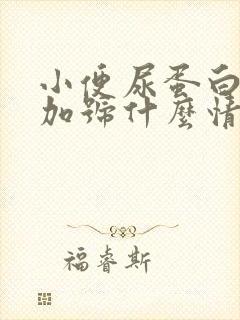 小便尿蛋白
加號什麼情
福睿斯